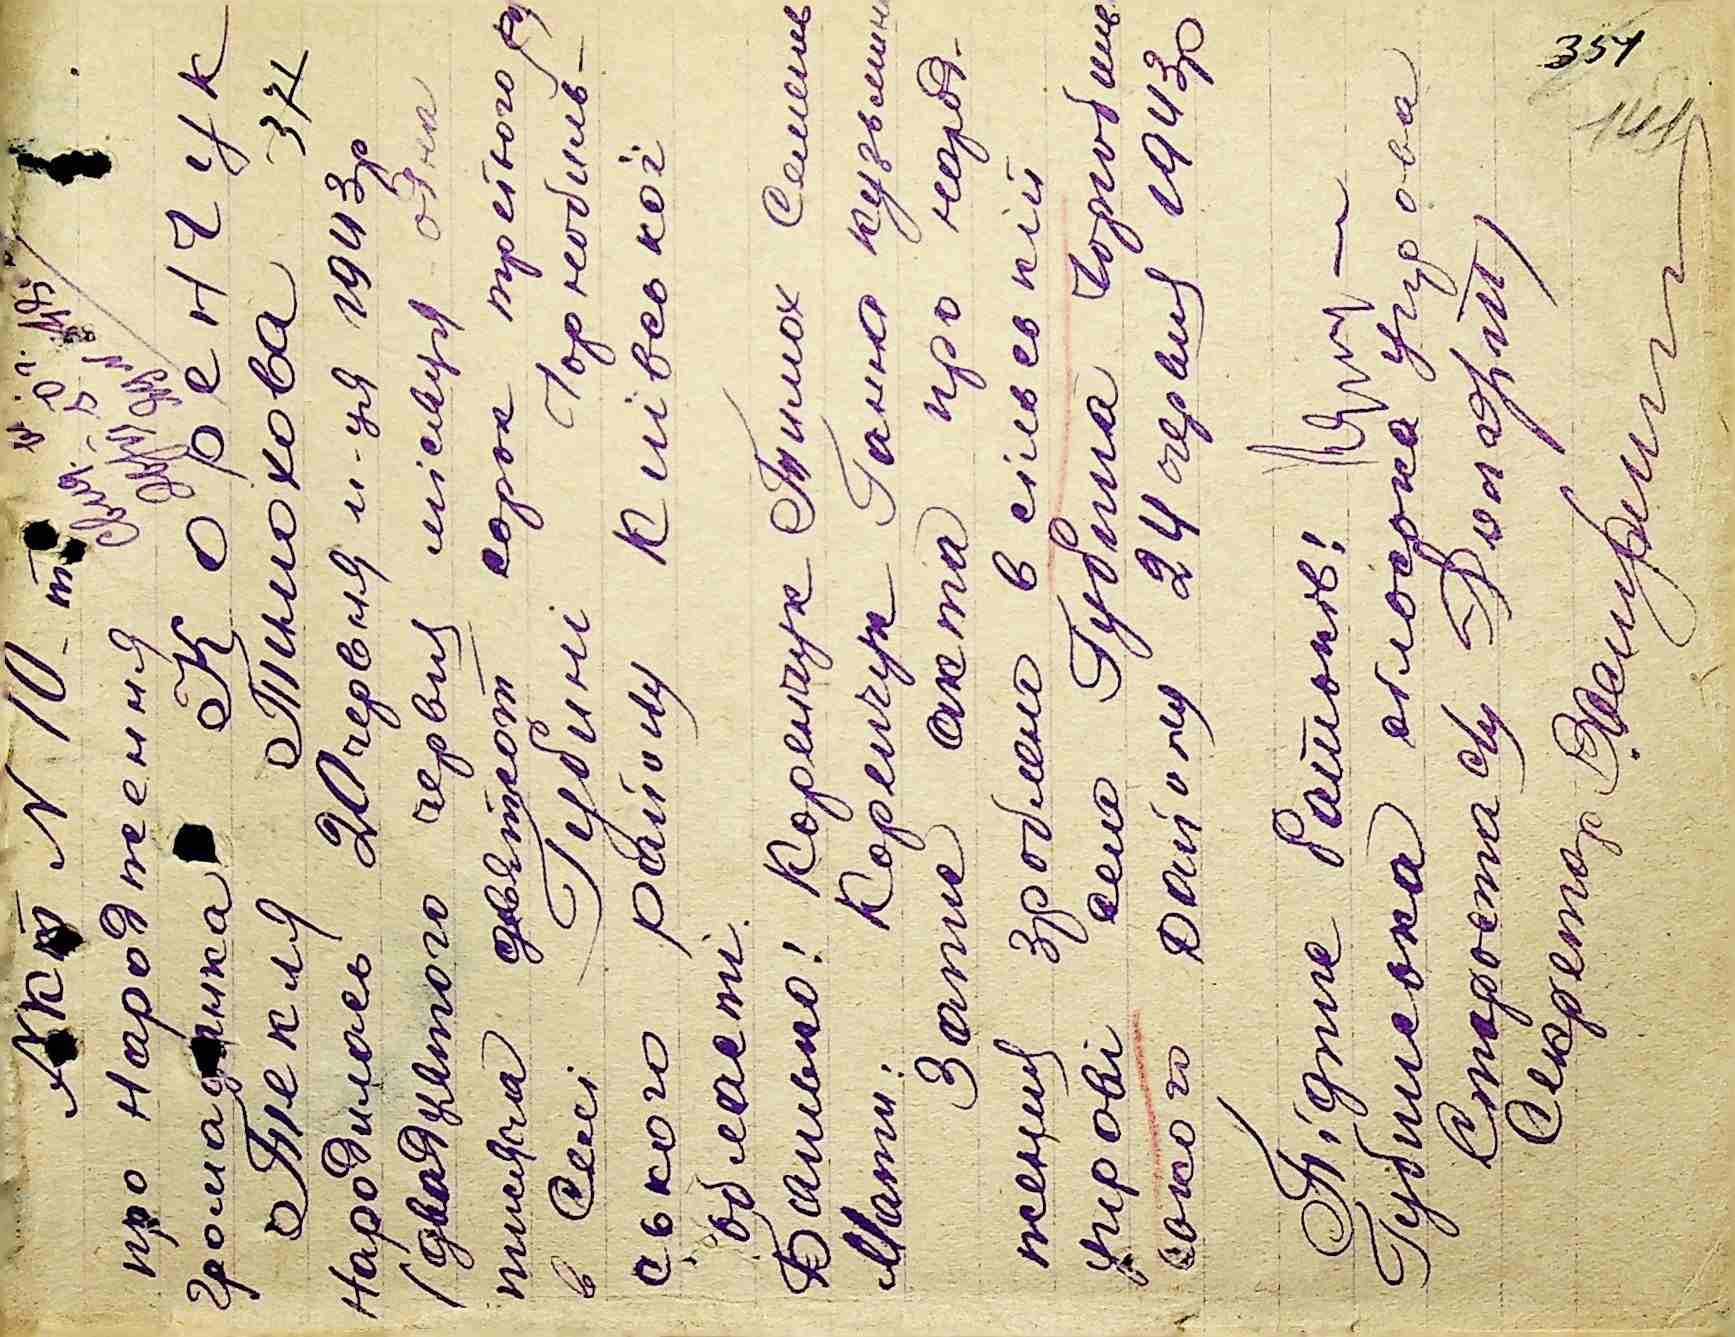 Акт N 10
про народження
громадянка Коренчук
Текля Тимохова
37
Народилась 20 червня м-ця 1943р
(двадцятого червня місяця одна
тисяча девятсот сорок третього р)
в Селі Губині Чорнобиль-
ського району Київської
області.
Батько: Коренчук Тимох Семен
Мати: Коренчук Ганна Кузьмин
Запис акта про народ-
ження зроблено в сільській
управі село Губина Чорнобиль
ського району 24 червня 1943р
Підпис батьків:
Губинська сільська управа
Староста с/у
Секретар
351